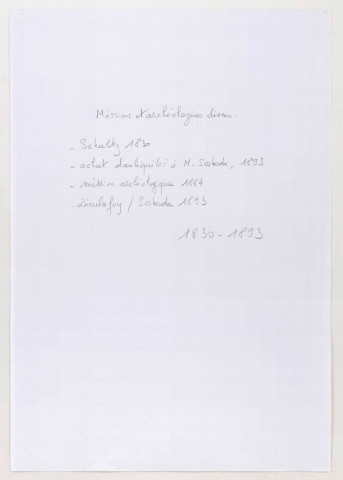 Missions et archéologues divers.
- Schultz 1830
- achat d'antiquités à M. Svoboda, 1893
- mission archéologique 1884
- Dieulafoy / Svoboda 1893
1830-1893